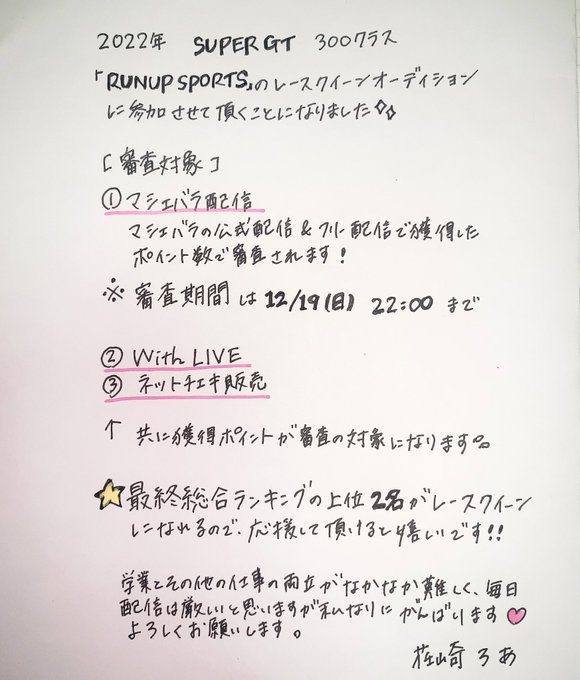 2022年 SUPER GT 300クラス
「RUNUP SPORTS」のレースクイーンオーディション
に参加させて頂くことになりました
[審査対象]
① マシェバラ配信
マシェバラの公式配信 & フリー配信で獲得した
ポイント数で審査されます!
※ 審査期間は 12/19(日) 22:00 まで
② With LIVE
③ ネットチェキ販売
↑ 共に獲得ポイントが審査の対象になります。
最終総合ランキングの上位2名がレースクイーン
になれるので、応援して頂けると嬉しいです!!
学業とその他の仕事の両立がなかなか難しく、毎日
配信は厳しいと思いますが私なりにがんばります
よろしくお願いします。
荘崎 ろあ